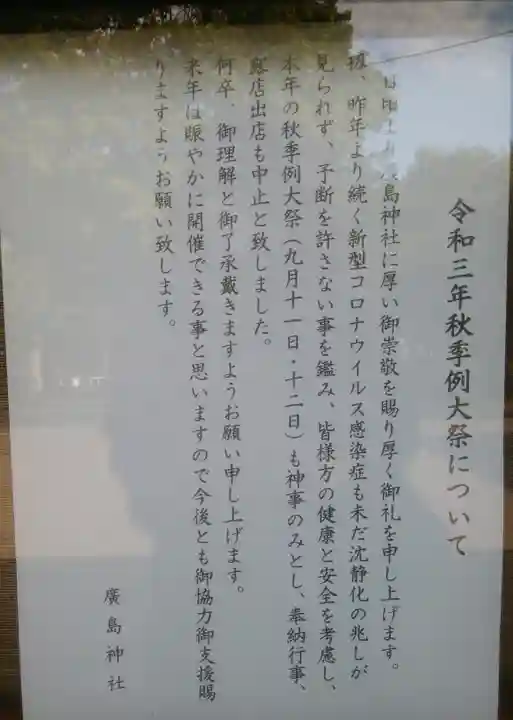 令和三年秋季例大祭について
島神社に厚い御崇敬を賜り厚く御礼を申し上げます。
扨、昨年より続く新型コロナウイルス感染症も未だ沈静化の兆しが
見られず、予断を許さない事を鑑み、皆様方の健康と安全を考慮し、
本年の秋季例大祭(九月十一日・十二日)も神事のみとし、奉納行事、
露店出店も中止と致しました。
何卒、御理解と御了承戴きますようお願い申し上げます。
来年は賑やかに開催できる事と思いますので今後とも御協力御支援賜
りますようお願い致します。
廣島神社